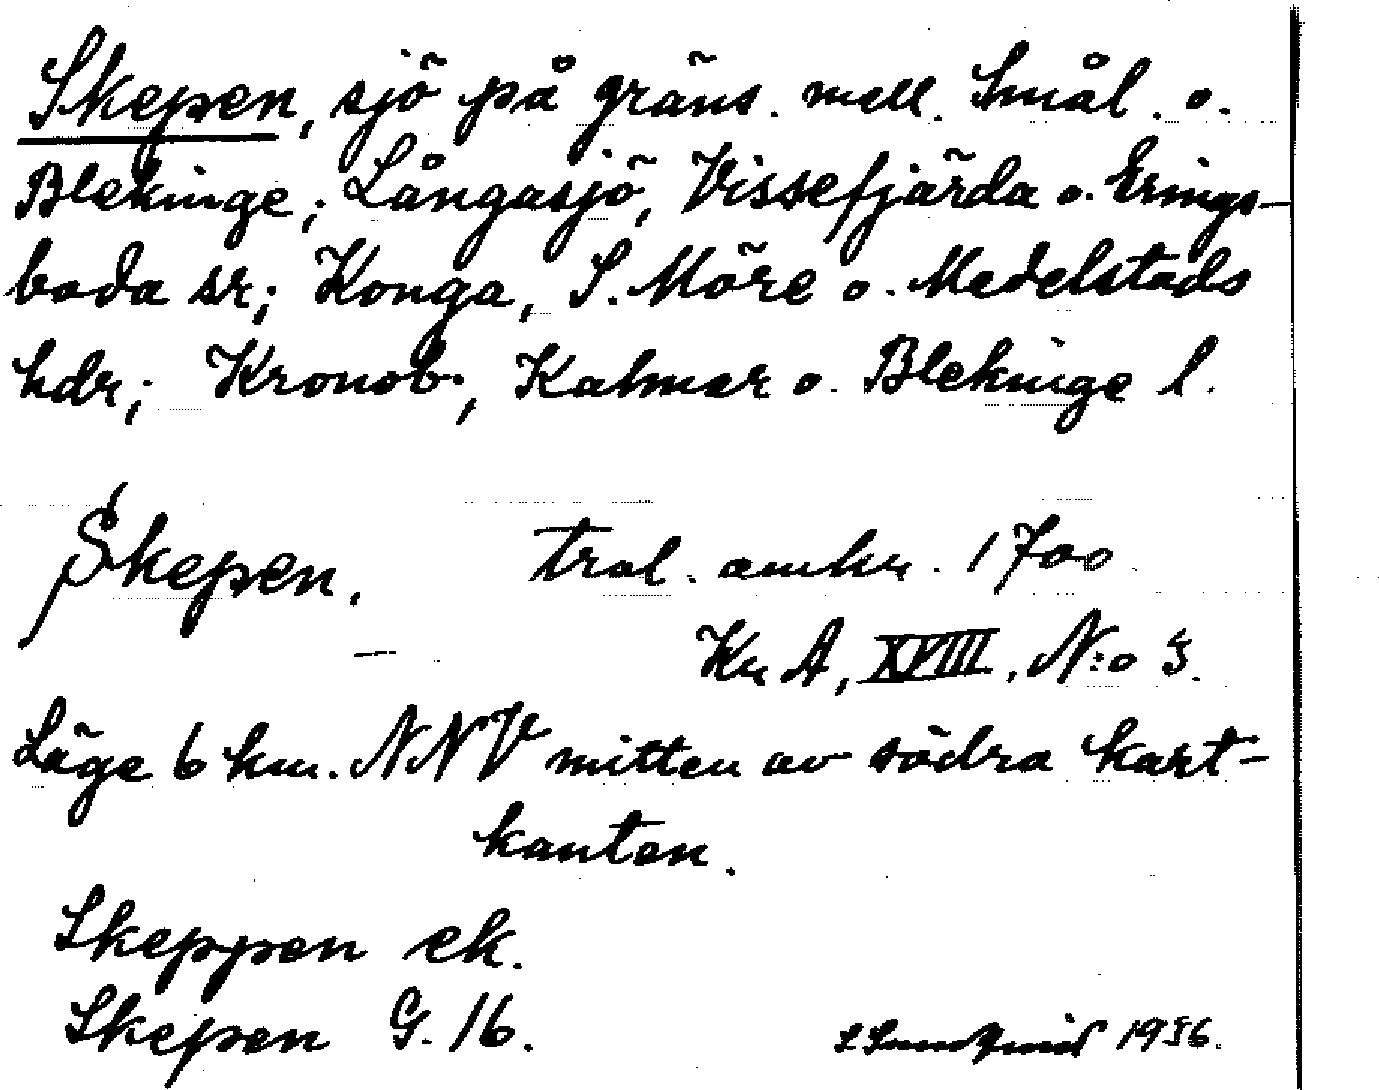 Skepen, sjö på gräns. mell. Smål. o.
Blekinge; Långasjö, Vissefjärda o. Erings-
boda sr; Konga, S. Möre o. Medelstads
hdr; Kronob., Kalmar o. Blekinge l.
Skepen. tral. omkr. 1700
Kr A, XVIII, N:o 3.
Läge 6 km. NNV mitten av södra kart-
kanten.
Skeppen ek.
Skepen G. 16.
1956.